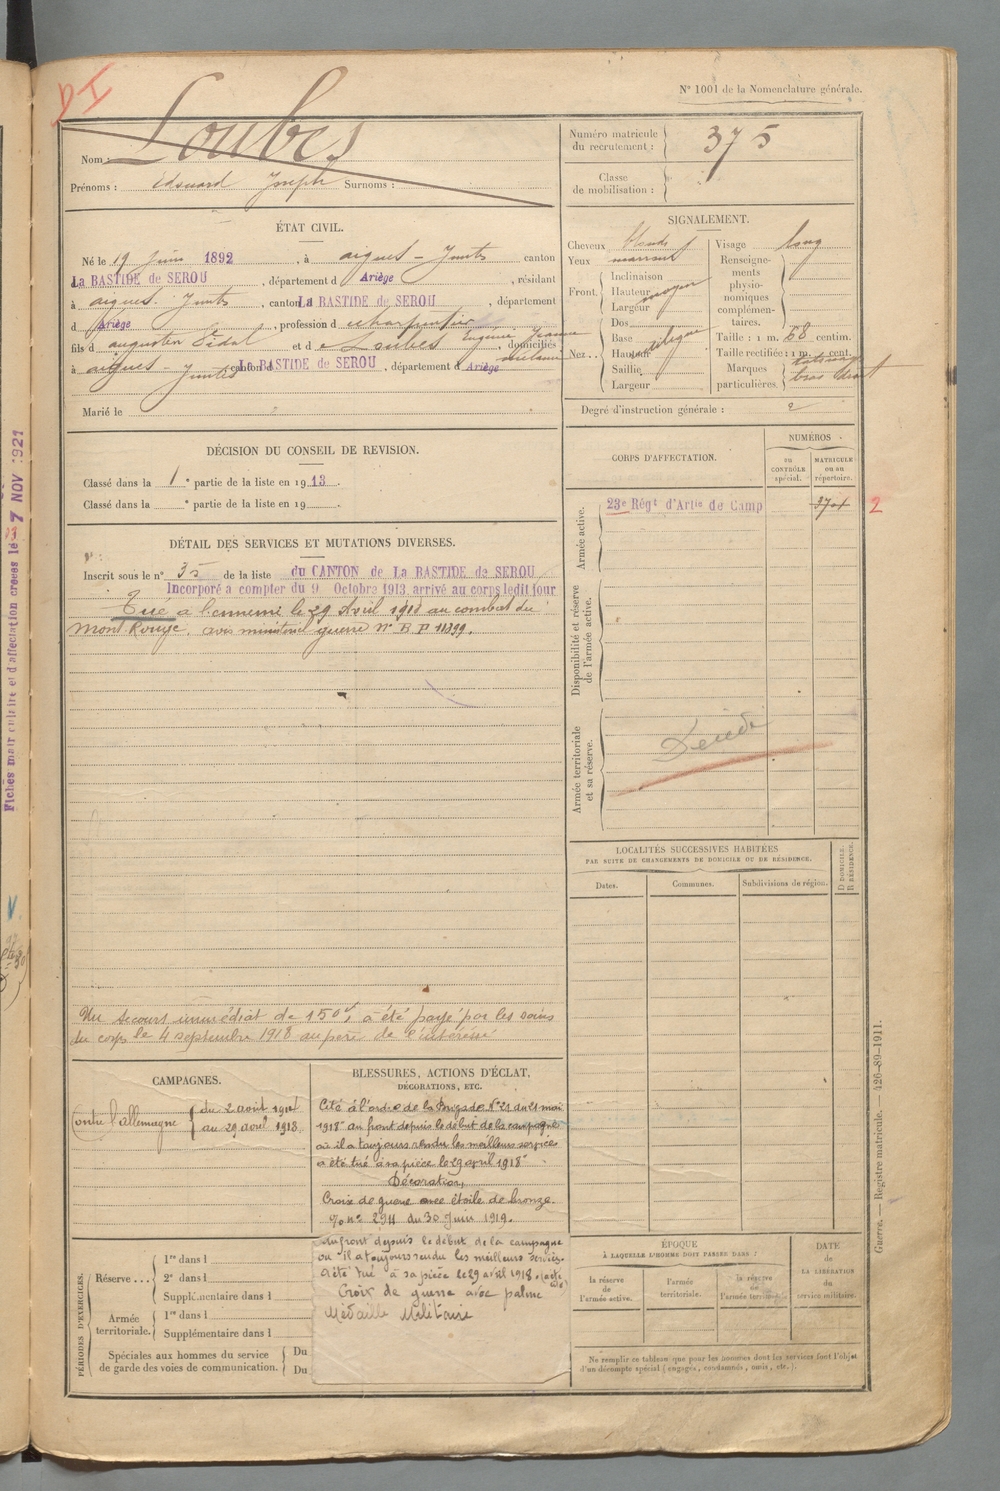 DI
N° 1001 de la Nomenclature générale.
Nom : Loubes
Prénoms : Edouard Joseph Surnoms :
Numéro matricule du recrutement : 375
Classe de mobilisation :
ÉTAT CIVIL.
Né le 19 Juin 1892, à aigues-Juntes canton
La BASTIDE de SEROU, département d Ariège, résidant
à aigues-Juntes, canton La BASTIDE de SEROU, département
d Ariège, profession de charpentier
fils d augustin Vidal et de Loubes Eugénie Jeanne domiciliés
à aigues-Juntes canton d La BASTIDE de SEROU, département d Ariège
Marié le
SIGNALEMENT.
Cheveux blonds
Yeux marrons
Front. Inclinaison
Hauteur moyen
Largeur
Nez.. Dos
Base
Hauteur rectiligne
Saillie
Largeur
Visage long
Renseignements physionomiques complémentaires.
Taille : 1 m. 68 centim.
Taille rectifiée : 1 m. cent.
Marques particulières. tatouage bras droit
Degré d'instruction générale : 2
DÉCISION DU CONSEIL DE REVISION.
Classé dans la 1e partie de la liste en 1913.
Classé dans la e partie de la liste en 19
CORPS D'AFFECTATION.
NUMÉROS
au CONTRÔLE spécial.
MATRICULE ou au répertoire.
Armée active.
23e Régt d'Artie de Camp
2
Disponibilité et réserve de l'armée active.
Armée territoriale et sa réserve.
DÉTAIL DES SERVICES ET MUTATIONS DIVERSES.
Inscrit sous le n° 35 de la liste du CANTON de La BASTIDE de SEROU
Incorporé à compter du 9 Octobre 1913, arrivé au corps ledit jour
Tué à l'ennemi le 29 Avril 1918 au combat du
Mont Rouge, avis ministériel guerre N° B P 11399.
Un secours immédiat de 150f a été payé par les soins
du corps le 4 septembre 1918 au père de l'intéressé
LOCALITÉS SUCCESSIVES HABITÉES
PAR SUITE DE CHANGEMENTS DE DOMICILE OU DE RÉSIDENCE.
Dates.
Communes.
Subdivisions de région.
D DOMICILE.
R RÉSIDENCE.
CAMPAGNES.
Contre l'allemagne
du 2 août 1914
au 29 avril 1918
BLESSURES, ACTIONS D'ÉCLAT,
DÉCORATIONS, ETC.
Cité à l'ordre de la Brigade N° 21 du 21 mai
1918 "au front depuis le début de la campagne
où il a toujours rendu les meilleurs services
a été tué à sa pièce le 29 avril 1918"
Décoration,
Croix de guerre avec étoile de bronze.
2911 du 30 Juin 1919.
au front depuis le début de la campagne
où il a toujours rendu les meilleurs services.
A été tué à sa pièce le 29 avril 1918.
Croix de guerre avec palme
Médaille Militaire
PÉRIODES D'EXERCICES.
Réserve...
1re dans l
2e dans l
Supplémentaire dans l
Armée territoriale.
1re dans l
Supplémentaire dans l
Spéciales aux hommes du service
de garde des voies de communication.
Du
Du
ÉPOQUE
À LAQUELLE L'HOMME DOIT PASSER DANS :
la réserve de l'armée active.
l'armée territoriale.
la réserve de l'armée territoriale.
DATE
de
LA LIBÉRATION
du
service militaire.
Ne remplir ce tableau que pour les hommes dont les services font l'objet
d'un décompte spécial (engagés, condamnés, omis, etc.).
Guerre. — Registre matricule. — 426-89-1911.
7 NOV 1921